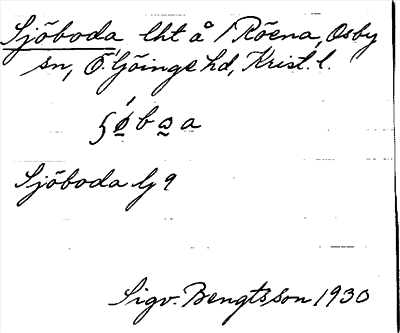 Sjöboda, lht å Röena, Osby
sn, Ö. Göinge hd, Krist. l.
Sjöboda lg 9
Sigv. Bengtsson 1930